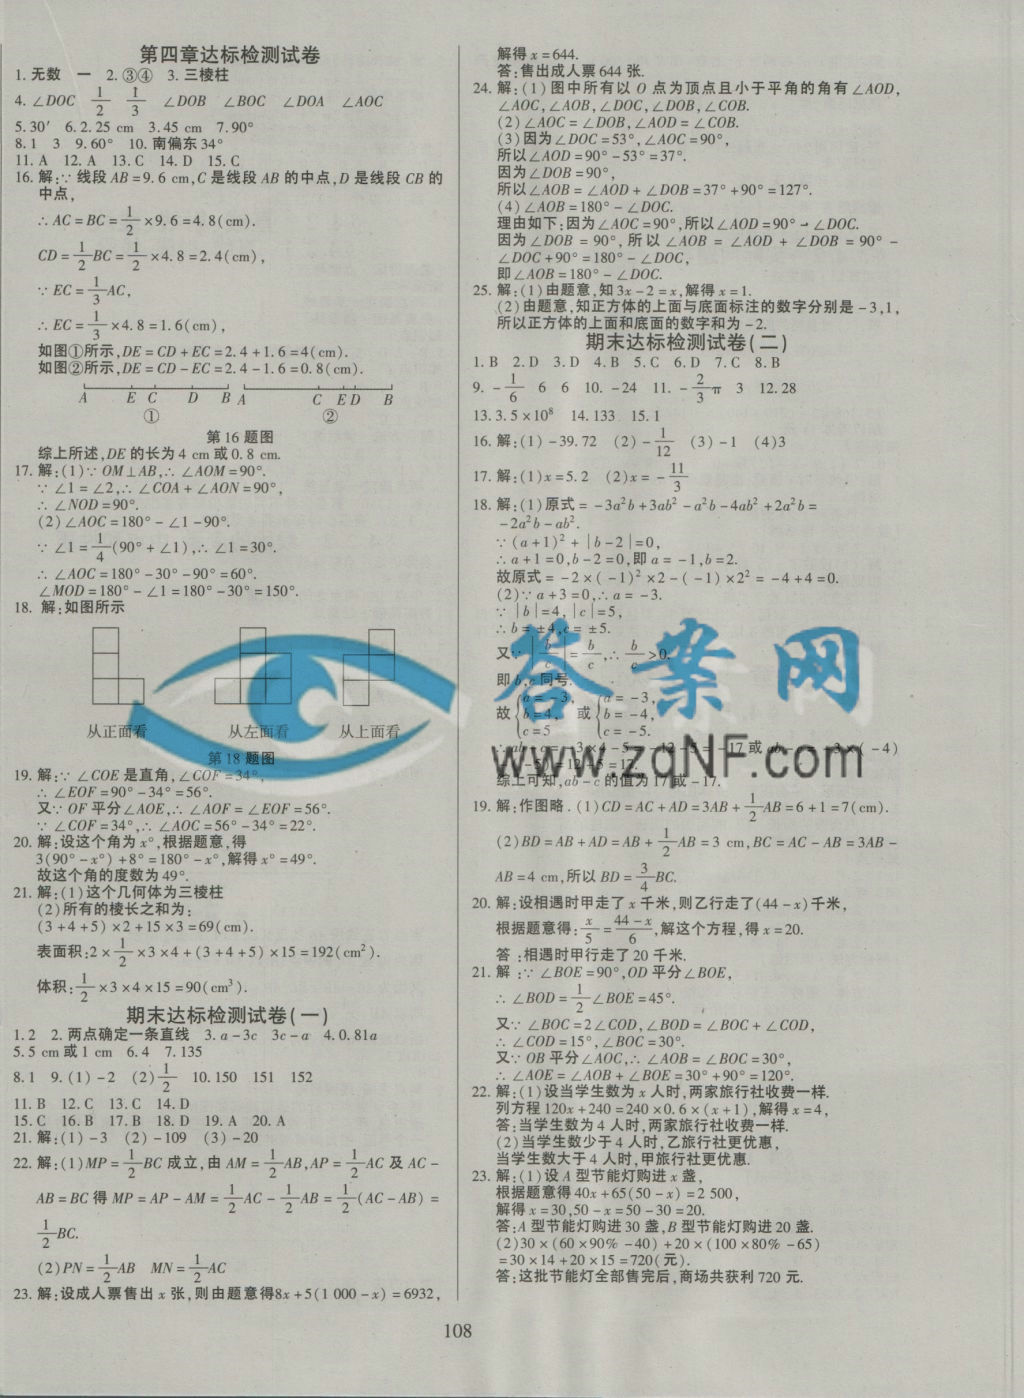 第四章达标检测试卷
1. 无数 一 2. ③④ 3. 三棱柱
4. ∠DOC 1/2 1/3 ∠DOB ∠BOC ∠DOA ∠AOC
5.30′ 6.2.25 cm 3.45 cm 7.90°
8.1 3 9.60° 10. 南偏东34°
11. A 12. A 13. C 14. D 15. C
16. 解:∵线段 AB=9.6 cm,C 是线段 AB 的中点,D 是线段 CB 的
中点,
∴AC=BC=1/2×9.6=4.8(cm).
CD=1/2BC=1/2×4.8=2.4(cm),
∵EC=1/3AC,
∴EC=1/3×4.8=1.6(cm),
如图①所示,DE=CD+EC=2.4+1.6=4(cm);
如图②所示,DE=CD-EC=2.4-1.6=0.8(cm).
A E C D B A C E D B
① ②
第 16 题图
综上所述,DE 的长为 4 cm 或 0.8 cm.
17. 解:(1)∵OM⊥AB,∴∠AOM=90°.
∵∠1=∠2,∴∠COA+∠AON=90°,
∴∠NOD=90°.
(2)∠AOC=180°-∠1-90°.
∵∠1=1/4(90°+∠1),∴∠1=30°.
∴∠AOC=180°-30°-90°=60°.
∠MOD=180°-∠1=180°-30°=150°.
18. 解:如图所示
从正面看 从左面看 从上面看
第 18 题图
19. 解:∵∠COE 是直角,∠COF=34°,
∴∠EOF=90°-34°=56°.
又∵OF 平分∠AOE,∴∠AOF=∠EOF=56°.
∵∠COF=34°,∴∠AOC=56°-34°=22°.
20. 解:设这个角为 x°,根据题意,得
3(90°-x°)+8°=180°-x°,解得x°=49°.
故这个角的度数为 49°.
21. 解:(1)这个几何体为三棱柱
(2)所有的棱长之和为:
(3+4+5)×2+15×3=69(cm).
表面积:2×1/2×3×4+(3+4+5)×15=192(cm²)
体积:1/2×3×4×15=90(cm³).
期末达标检测试卷(一)
1.2 2. 两点确定一条直线 3. a-3c 3c-a 4.0.81a
5.5 cm 或 1 cm 6.4 7.135
8.1 9.(1)-2 (2)1/2 10.150 151 152
11. B 12. C 13. C 14. D
15. C 16. B 17. B 18. D 19. A 20. A
21. 解:(1)-3 (2)-109 (3)-20
22. 解:(1)MP=1/2BC 成立,由 AM=1/2AB,AP=1/2AC 及 AC-
AB=BC 得 MP=AP-AM=1/2AC-1/2AB=1/2(AC-AB)=
1/2BC.
(2)PN=1/2AB MN=1/2AC
23. 解:设成人票售出 x 张,则由题意得8x+5(1 000-x)=6932,
解得 x=644.
答:售出成人票 644 张.
24. 解:(1)图中所有以 O 点为顶点且小于平角的角有∠AOD,
∠AOC,∠AOB,∠DOC,∠DOB,∠COB.
(2)∠AOC=∠DOB,∠AOD=∠COB.
(3)因为∠DOC=53°,∠AOC=90°,
所以∠AOD=90°-53°=37°.
因为∠DOB=90°,
所以∠AOB=∠AOD+∠DOB=37°+90°=127°.
(4)∠AOB=180°-∠DOC.
理由如下:因为∠AOC=90°,所以∠AOD=90°-∠DOC.
因为∠DOB=90°,所以∠AOB=∠AOD+∠DOB=90°-
∠DOC+90°=180°-∠DOC,
即∠AOB=180°-∠DOC.
25. 解:(1)由题意,知 3x-2=x,解得 x=1.
(2)由题意,知正方体的上面与底面标注的数字分别是-3,1,
所以正方体的上面和底面的数字和为-2.
期末达标检测试卷(二)
1. B 2. D 3. D 4. B 5. C 6. D 7. C 8. B
9. -1/6 6 6 10. -24 11. -2/3π 3 12.28
13.3.5×10⁸ 14.133 15.1
16. 解:(1)-39.72 (2)-1/12 (3)-1 (4)3
17. 解:(1)x=5.2 (2)x=-11/3
18. 解:(1)原式=-3a²b+3ab²-a²b-4ab²+2a²b=
-2a²b-ab².
∵(a+1)²+|b-2|=0,
∴a+1=0,b-2=0,即 a=-1,b=2.
故原式=-2×(-1)²×2-(-1)×2²=-4+4=0.
(2)∵a+3=0,∴a=-3.
∵|b|=4,|c|=5,
∴b=±4,c=±5.
又∵|b/c|=b/c,∴b/c>0.
即 b,c 同号.
故{a=-3, b=4, c=5 或{a=-3, b=-4, c=-5.
∴ab-c=-3×4-5=-12-5=-17或ab-c=-3×(-4)
-(-5)=12+5=17.
综上可知,ab-c 的值为 17 或-17.
19. 解:作图略.(1)CD=AC+AD=3AB+1/2AB=6+1=7(cm).
(2)BD=AB+AD=AB+1/2AB=3 cm,BC=AC-AB=3AB-
AB=4 cm,所以 BD=3/4BC.
20. 解:设相遇时甲走了 x 千米,则乙行走了(44-x)千米,
根据题意得:x/5=44-x/6,解这个方程,得 x=20.
答:相遇时甲行走了 20 千米.
21. 解:∵∠BOE=90°,OD 平分∠BOE,
∴∠BOD=1/2∠BOE=45°.
又∵∠BOC=2∠COD,∠BOD=∠BOC+∠COD,
∴∠COD=15°,∠BOC=30°.
又∵OB 平分∠AOC,∴∠AOB=∠BOC=30°,
∴∠AOE=∠AOB+∠BOE=30°+90°=120°.
22. 解:(1)设当学生数为 x 人时,两家旅行社收费一样.
列方程 120x+240=240×0.6×(x+1),解得 x=4,
答:当学生数为 4 人时,两家旅行社收费一样.
(2)当学生数少于 4 人时,乙旅行社更优惠,
当学生数大于 4 人时,甲旅行社更优惠.
23. 解:(1)设 A 型节能灯购进 x 盏,
根据题意得 40x+65(50-x)=2 500,
解得 x=30,50-x=50-30=20.
答:A 型节能灯购进 30 盏,B 型节能灯购进 20 盏.
(2)30×(60×90%-40)+20×(100×80%-65)
=30×14+20×15=720(元).
答:这批节能灯全部售完后,商场共获利 720 元.
108
答案网
www.zqNF.com